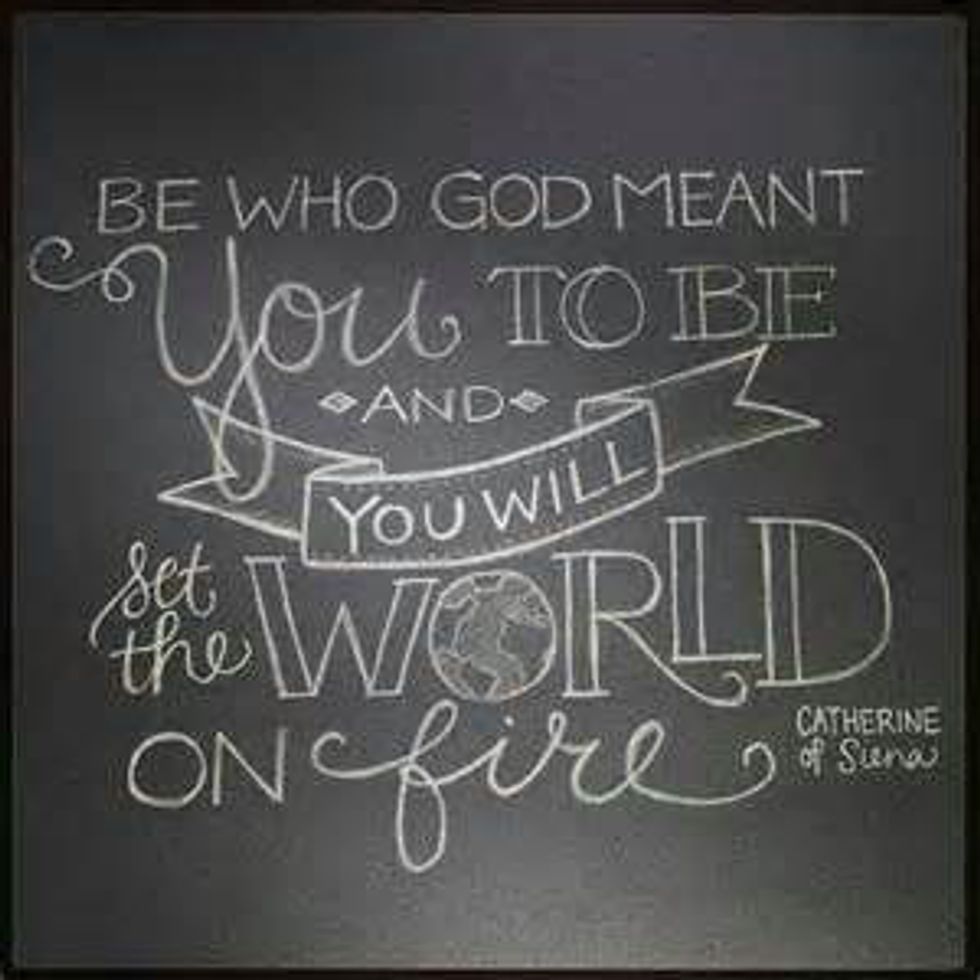 BE WHO GOD MEANT
You TO BE
AND
YOU WILL
set
the WORLD
ON fire
CATHERINE
of Siena